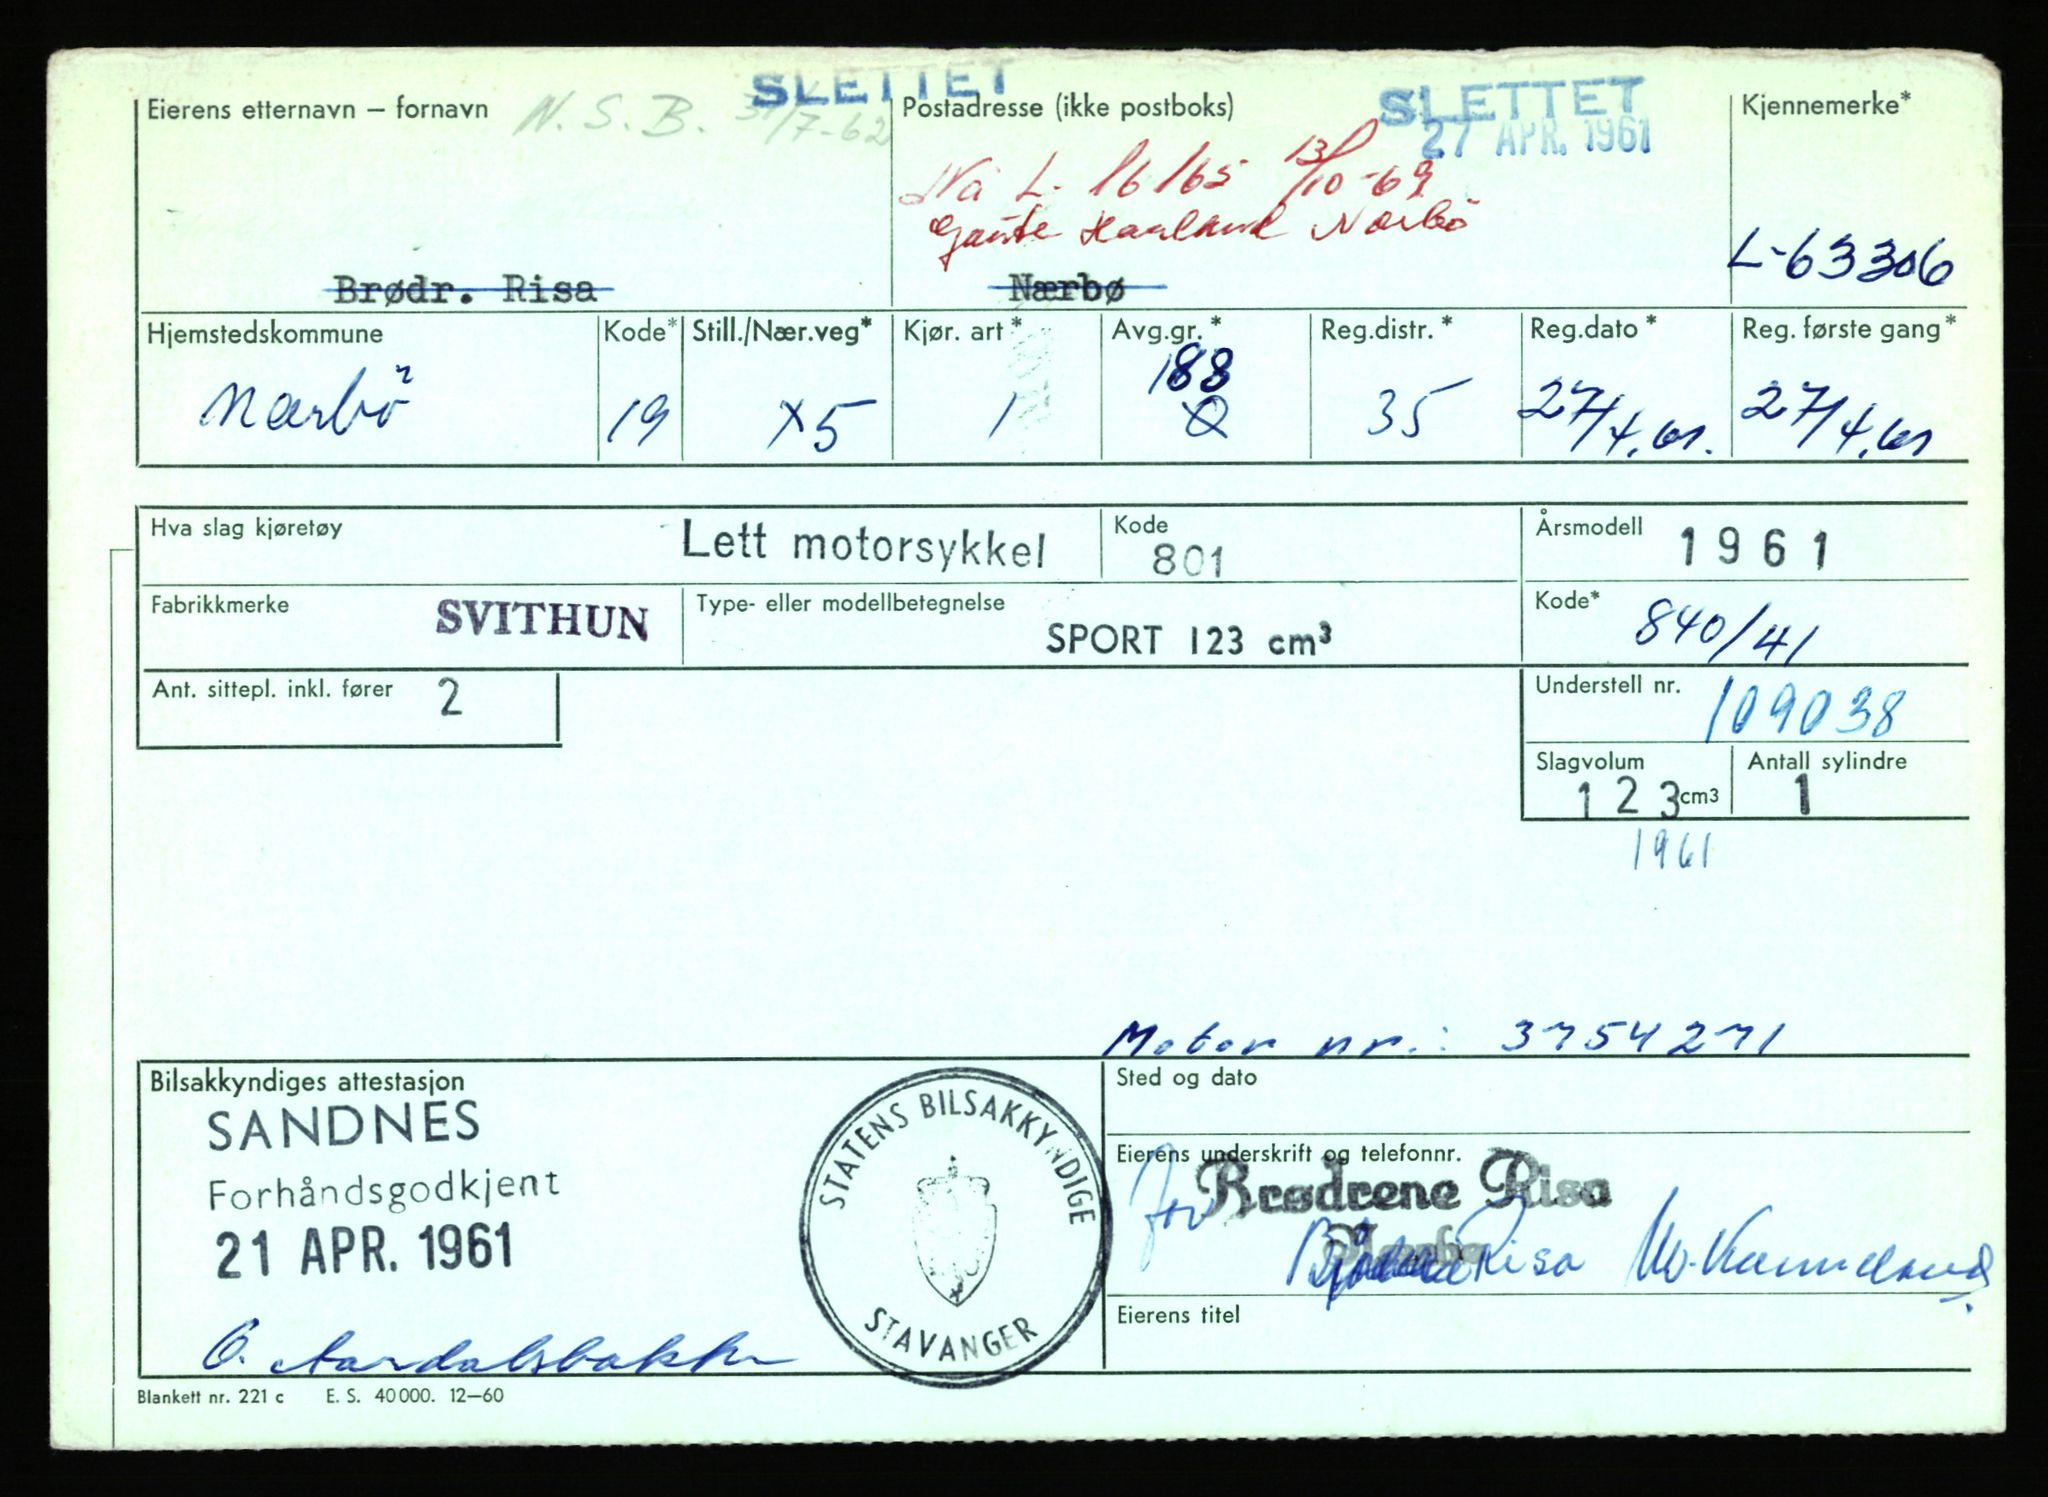 SLETTET
SLETTET
27 APR. 1961
Eierens etternavn – fornavn
N.S.B. 31/7-62
Postadresse (ikke postboks)
Kjennemerke*
Nå L- 16165 13/10-69
Gaute Haaland Nærbö
L-63306
Brødr. Risa
Nærbø
Hjemstedskommune Kode* Still./Nær.veg* Kjør. art* Avg.gr.* Reg.distr.* Reg.dato* Reg. første gang*
188
Nærbö 19 x5 1 35 27/4.61. 27/4.61
Hva slag kjøretøy Lett motorsykkel Kode 801 Årsmodell 1961
Fabrikkmerke SVITHUN Type- eller modellbetegnelse SPORT 123 cm³ Kode* 840/41
Ant. sittepl. inkl. fører 2 Understell nr. 109038
Slagvolum Antall sylindre
123 cm3 1
1961
Motor nr.: 3754271
Bilsakkyndiges attestasjon
SANDNES
Forhåndsgodkjent
21 APR. 1961
O. Aardalsbakke
STATENS BILSAKKYNDIGE
STAVANGER
Sted og dato
Eierens underskrift og telefonnr.
for Brødrene Risa
Risa
Eierens titel
Blankett nr. 221 c E. S. 40000. 12–60